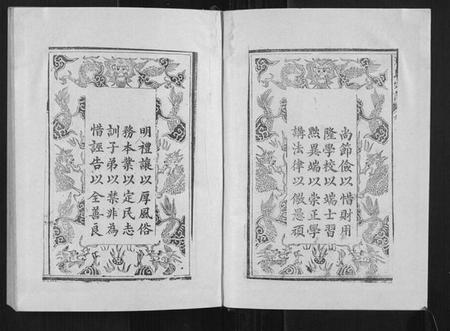 尚節儉以惜財用
隆學校以端士習
黜異端以崇正學
講法律以儆愚頑
明禮讓以厚風俗
務本業以定民志
訓子弟以禁非為
惜誣告以全善良